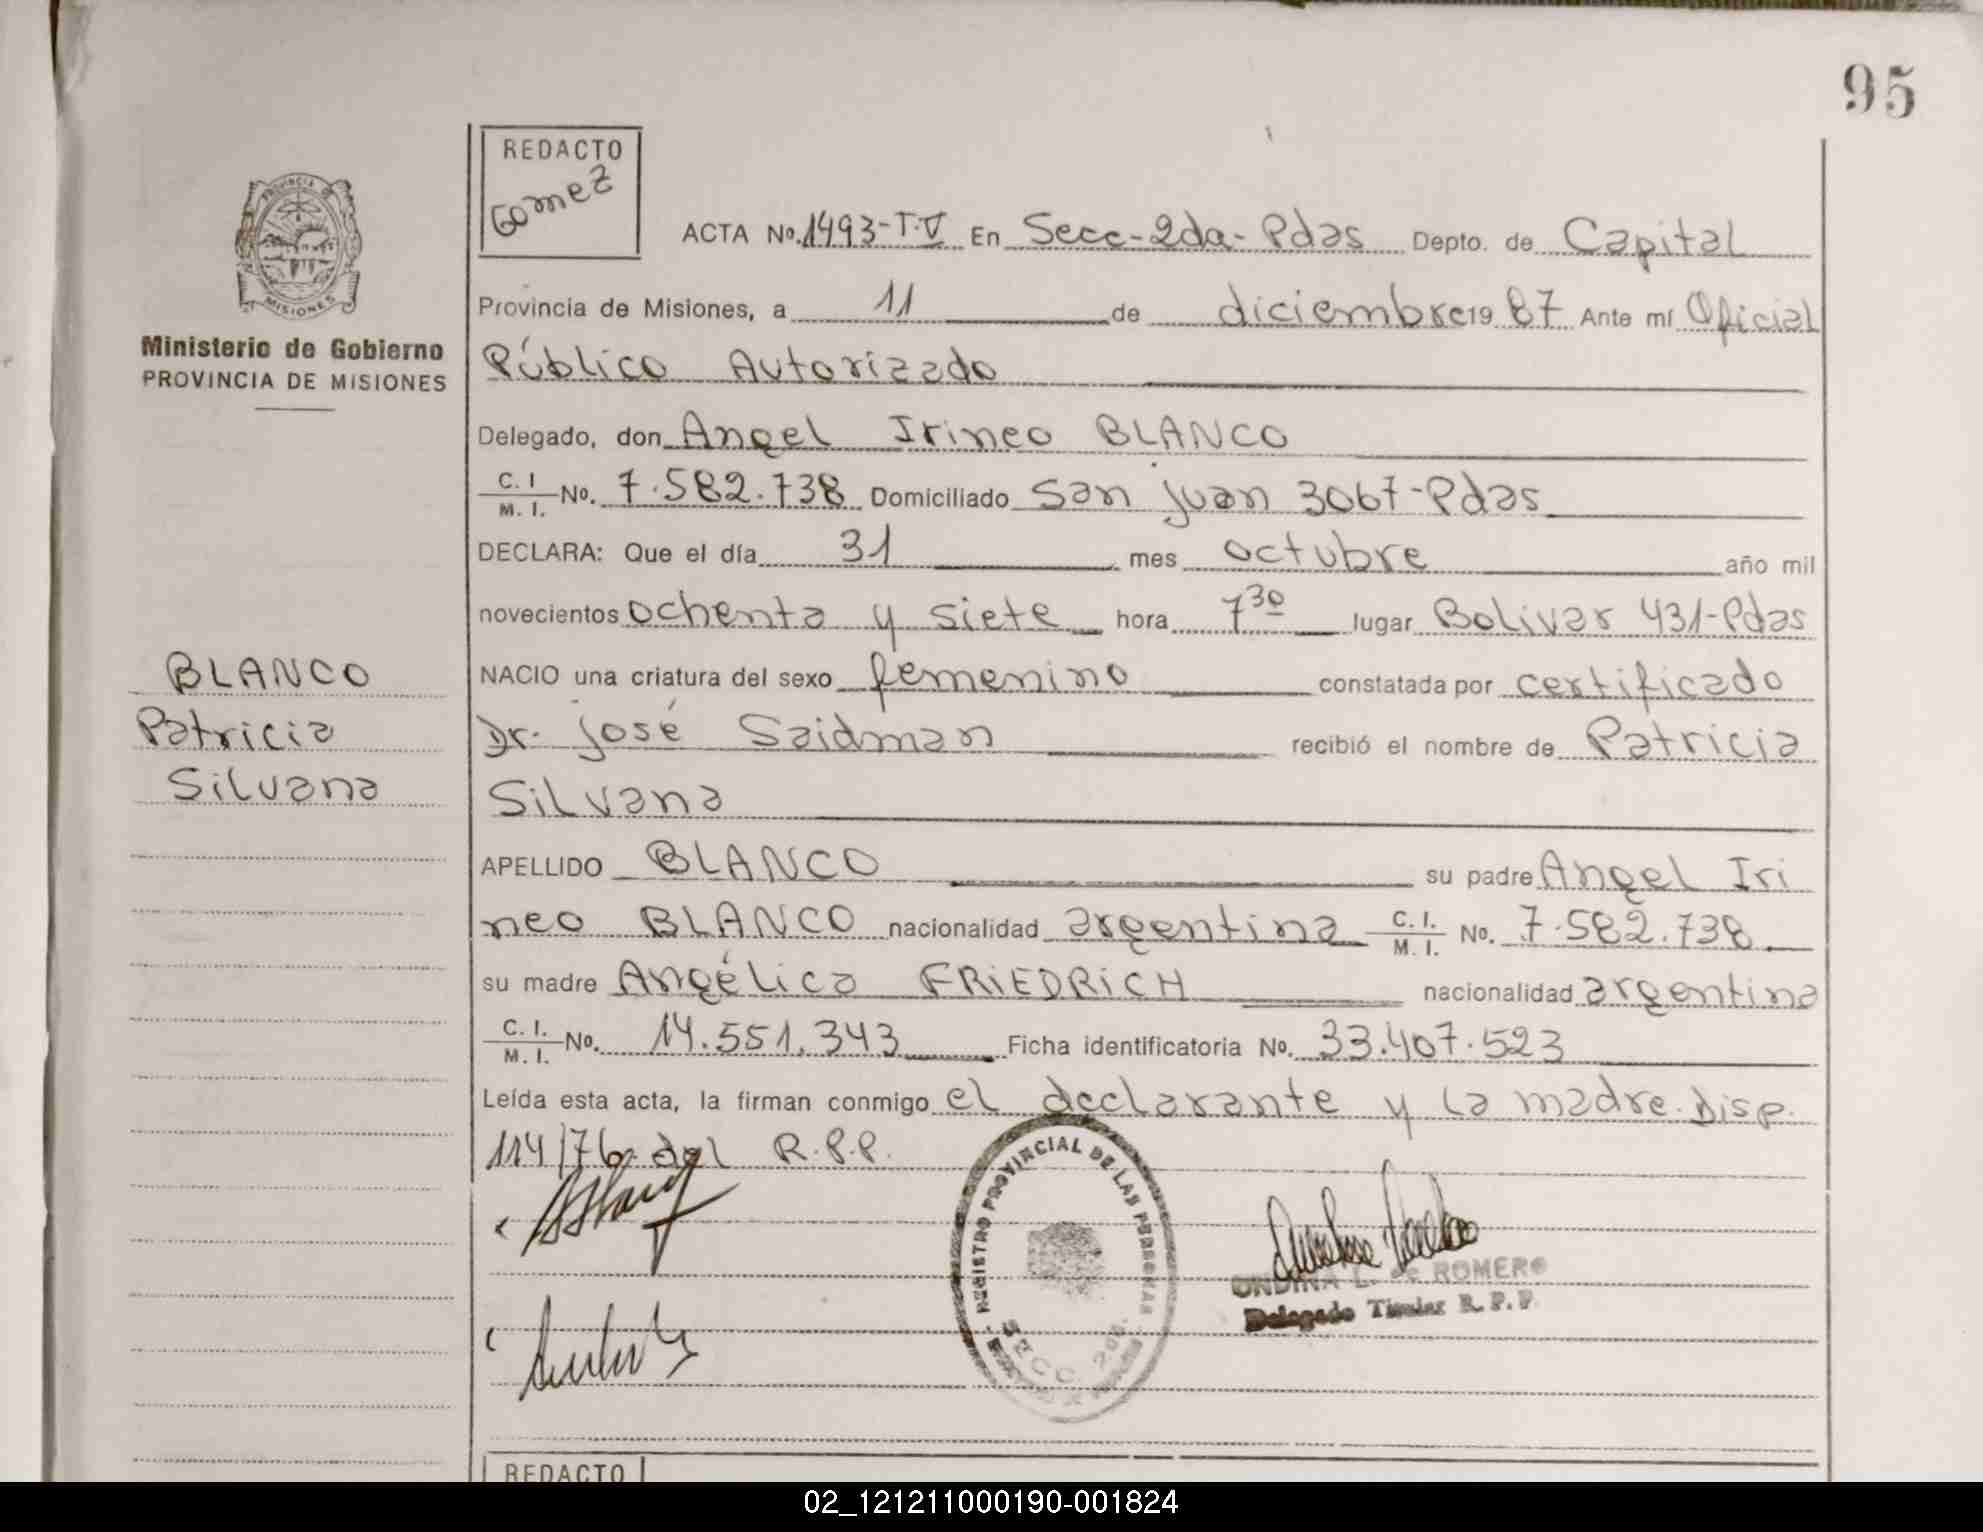 95
REDACTO
Gomez
ACTA No. 1493-T.V En Secc-2da-Pdas Depto. de Capital
Provincia de Misiones, a 11 de diciembre 19 87 Ante mí Oficial
Público Autorizado
Delegado, don Angel Irineo BLANCO
C. I. M. I. No. 7.582.738 Domiciliado San Juan 3067-Pdas
DECLARA: Que el día 31 mes octubre año mil
novecientos ochenta y siete hora 7 30 lugar Bolivar 431-Pdas
NACIO una criatura del sexo femenino constatada por certificado
Dr. José Saidman recibió el nombre de Patricia
Silvana
APELLIDO BLANCO su padre Angel Iri
neo BLANCO nacionalidad argentina C. I. M. I. No. 7.582.738
su madre Angélica FRIEDRICH nacionalidad argentina
C. I. M. I. No. 14.551.343 Ficha identificatoria No. 33.407.523
Leída esta acta, la firman conmigo el declarante y la madre. Disp.
114/76 del R.P.P.
REGISTRO PROVINCIAL DE LAS PERSONAS
SECC 2da.
ONDINA L. de ROMERO
Delegado Titular R. P. P.
PROVINCIA DE
MISIONES
Ministerio de Gobierno
PROVINCIA DE MISIONES
BLANCO
Patricia
Silvana
REDACTO
02_121211000190-001824